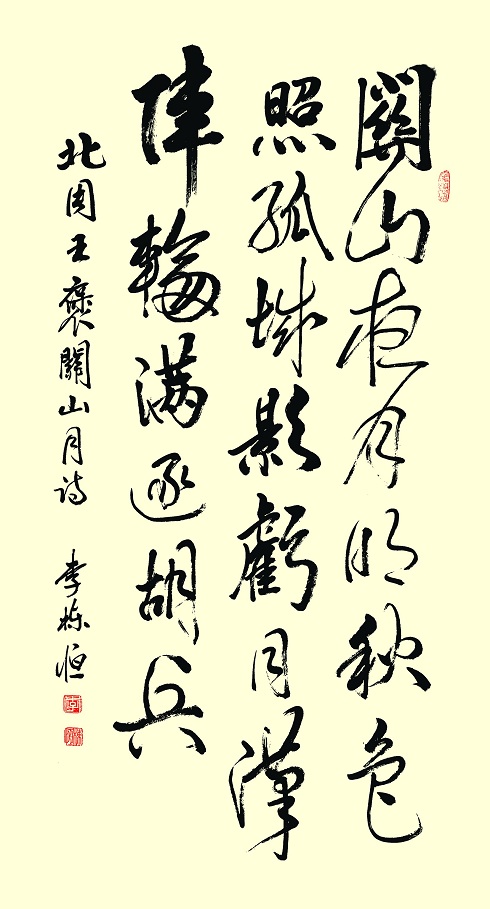 關山夜月明秋色
照孤城影虧同漢
陣輪满逐胡兵
北周王褒關山月诗 李栋恒